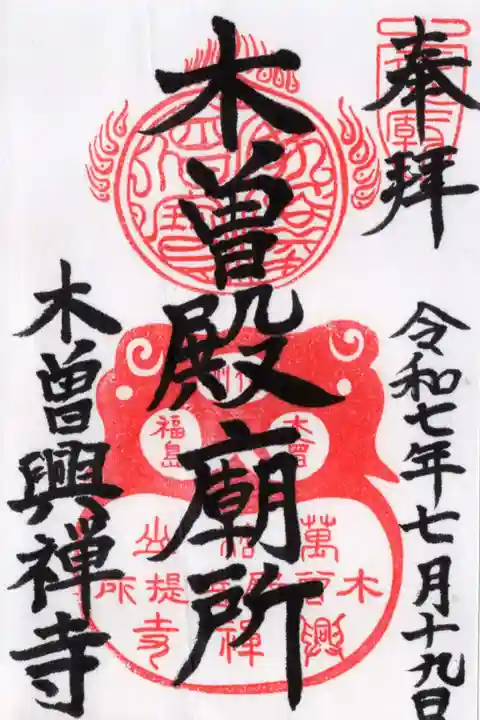 奉拝
令和七年七月十九日
木曽殿廟所
木曽興禅寺
木曽
福島
萬
木
興禅
提寺
所